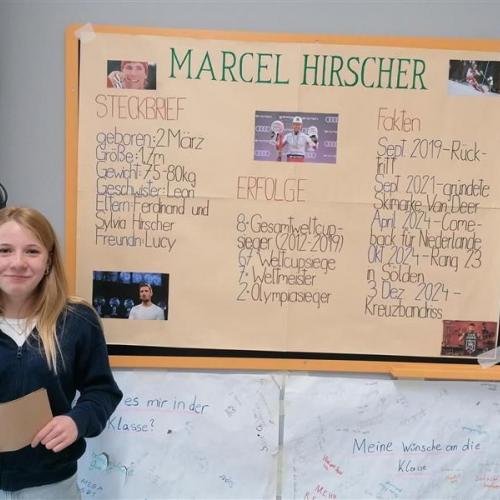 MARCEL HIRSCHER
STECKBRIEF
geboren: 2 März
Größe: 1,7m
Gewicht: 75-80kg
Geschwister: Leon
Eltern: Ferdinand und
Sylvia Hirscher
Freundin: Lucy
ERFOLGE
8-Gesamtweltcup-
sieger (2012-2019)
67 Weltcupsiege
7-Weltmeister
2-Olympiasieger
Fakten
Sept 2019-Rück-
tritt
Sept 2021-gründete
Skimarke Van Deer
April 2024-Come-
back für Niederlande
Okt 2024-Rang 23
in Sölden
3 Dez 2024-
Kreuzbandriss
es mir in der
Klasse?
Meine Wünsche an die
Klasse